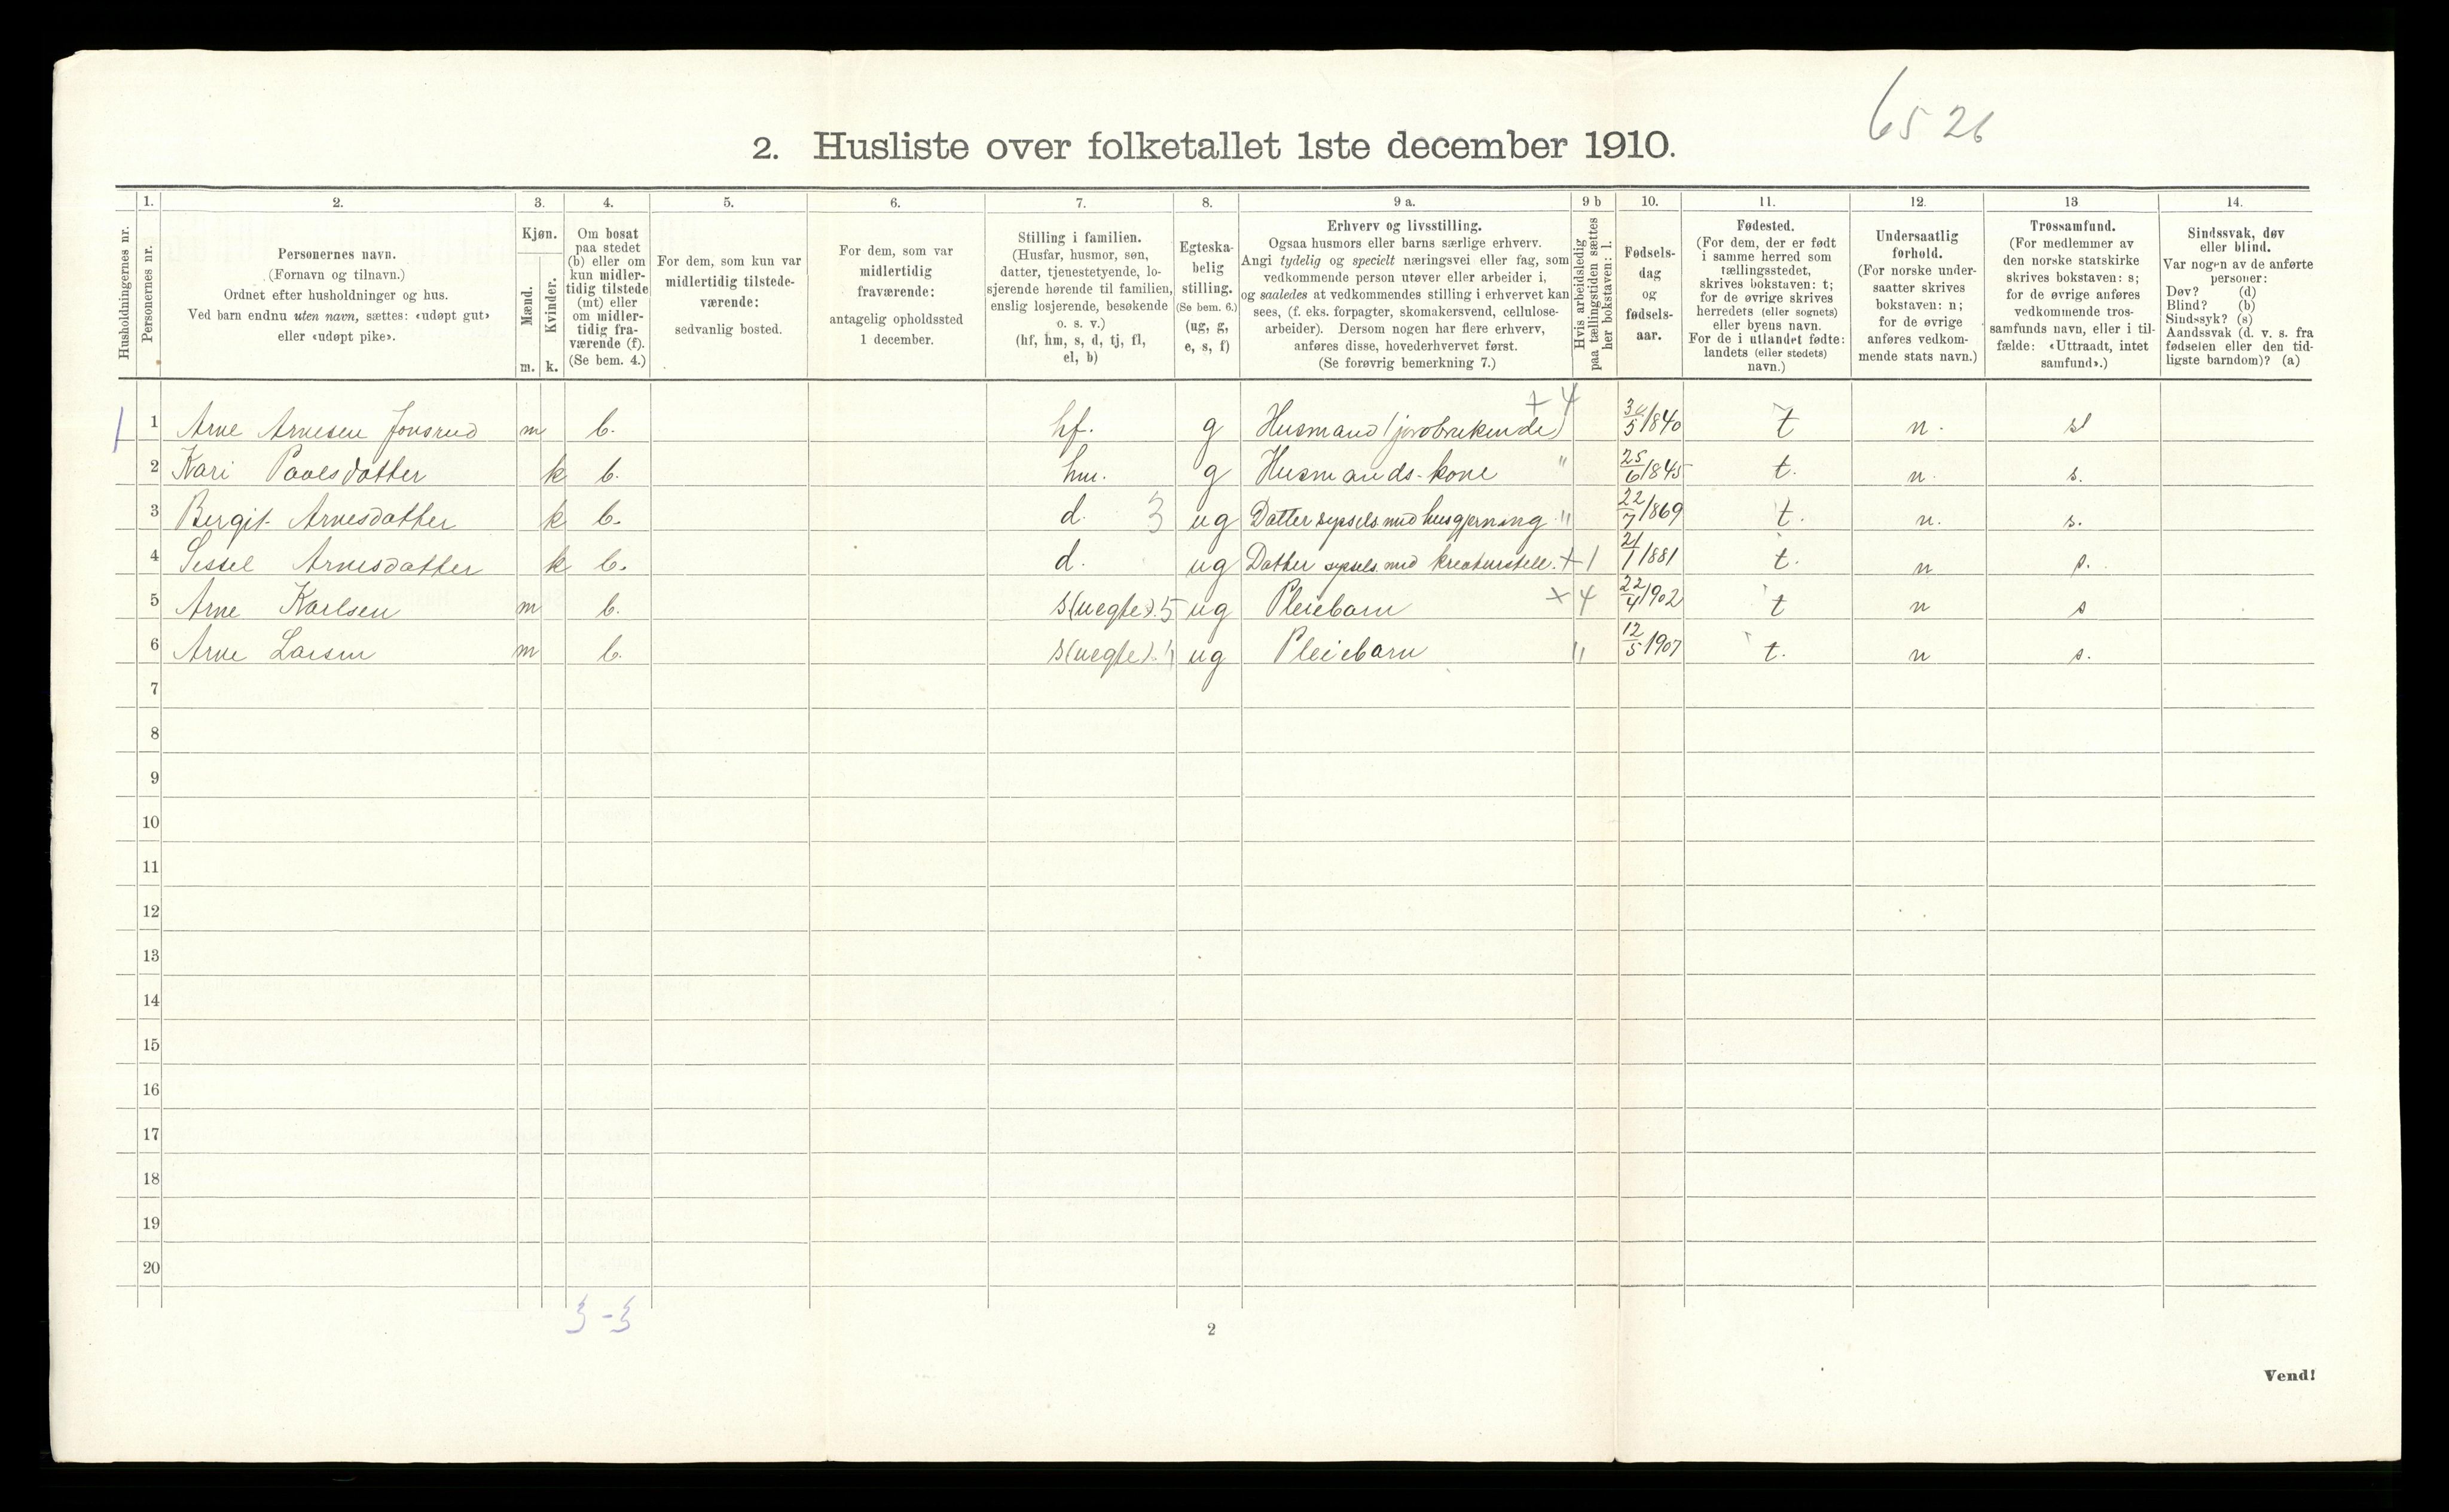 65 26
2. Husliste over folketallet 1ste december 1910.
Husholdningernes nr.
1.
Personernes nr.
2.
Personernes navn.
(Fornavn og tilnavn.)
Ordnet efter husholdninger og hus.
Ved barn endnu uten navn, sættes: «udøpt gut»
eller «udøpt pike».
3.
Kjøn.
Mænd.
Kvinder.
m. k.
4.
Om bosat
paa stedet
(b) eller om
kun midler-
tidig tilstede
(mt) eller
om midler-
tidig fra-
værende (f).
(Se bem. 4.)
5.
For dem, som kun var
midlertidig tilstede-
værende:
sedvanlig bosted.
6.
For dem, som var
midlertidig
fraværende:
antagelig opholdssted
1 december.
7.
Stilling i familien.
(Husfar, husmor, søn,
datter, tjenestetyende, lo-
sjerende hørende til familien,
enslig losjerende, besøkende
o. s. v.)
(hf, hm, s, d, tj, fl,
el, b)
8.
Egteska-
belig
stilling.
(Se bem. 6.)
(ug, g,
e, s, f)
9 a.
Erhverv og livsstilling.
Ogsaa husmors eller barns særlige erhverv.
Angi tydelig og specielt næringsvei eller fag, som
vedkommende person utøver eller arbeider i,
og saaledes at vedkommendes stilling i erhvervet kan
sees, (f. eks. forpagter, skomakersvend, cellulose-
arbeider). Dersom nogen har flere erhverv,
anføres disse, hovederhvervet først.
(Se forøvrig bemerkning 7.)
9 b
Hvis arbeidsledig
paa tællingstiden sættes
her bokstaven: l.
10.
Fødsels-
dag
og
fødsels-
aar.
11.
Fødested.
(For dem, der er født
i samme herred som
tællingsstedet,
skrives bokstaven: t;
for de øvrige skrives
herredets (eller sognets)
eller byens navn.
For de i utlandet fødte:
landets (eller stedets)
navn.)
12.
Undersaatlig
forhold.
(For norske under-
saatter skrives
bokstaven: n;
for de øvrige
anføres vedkom-
mende stats navn.)
13
Trossamfund.
(For medlemmer av
den norske statskirke
skrives bokstaven: s;
for de øvrige anføres
vedkommende tros-
samfunds navn, eller i til-
fælde: «Uttraadt, intet
samfund».)
14.
Sindssvak, døv
eller blind.
Var nogen av de anførte
personer:
Døv? (d)
Blind? (b)
Sindssyk? (s)
Aandssvak (d. v. s. fra
fødselen eller den tid-
ligste barndom)? (a)
+ 4
1 1 Arne Arnesen Jonsrud m b. hf. g Husmand (jordbrukende) 30/5 1840 t n. s
2 Kari Paalsdatter k b. hm. g Husmands-kone " 25/6 1845 t. n. s.
3 Bergit Arnesdatter k b. d. 3 ug Datter sysels. med husgjerning " 22/7 1869 t. n. s.
4 Sissel Arnesdatter k b. d. ug Datter sysels. med kreaturstell. + 1 21/1 1881 t. n s.
5 Arne Karlsen m b. s (uegte). 5 ug Pleiebarn × 4 22/4 1902 t n s
6 Arne Larsen m b. s (uegte). " ug Pleiebarn " 12/5 1907 t. n s.
7
8
9
10
11
12
13
14
15
16
17
18
19
20
3 - 3
2
Vend!